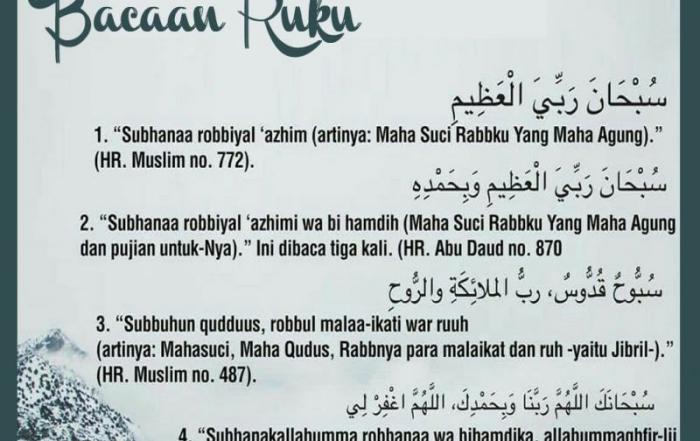 Bacaan Ruku
سُبْحَانَ رَبِّيَ الْعَظِيمِ
1. “Subhanaa robbiyal ‘azhim (artinya: Maha Suci Rabbku Yang Maha Agung).”
(HR. Muslim no. 772).
سُبْحَانَ رَبِّيَ الْعَظِيمِ وَبِحَمْدِهِ
2. “Subhanaa robbiyal ‘azhimi wa bi hamdih (Maha Suci Rabbku Yang Maha Agung
dan pujian untuk-Nya).” Ini dibaca tiga kali. (HR. Abu Daud no. 870
سُبُّوحٌ قُدُّوسٌ، رَبُّ الملائِكَةِ والرُّوحِ
3. “Subbuhun qudduus, robbul malaa-ikati war ruuh
(artinya: Mahasuci, Maha Qudus, Rabbnya para malaikat dan ruh -yaitu Jibril-).”
(HR. Muslim no. 487).
سُبْحَانَكَ اللَّهُمَّ رَبَّنَا وَبِحَمْدِكَ، اللَّهُمَّ اغْفِرْ لِي
4. “Subhanakallahumma robbanaa wa bihamdika, allahummaghfir-lii